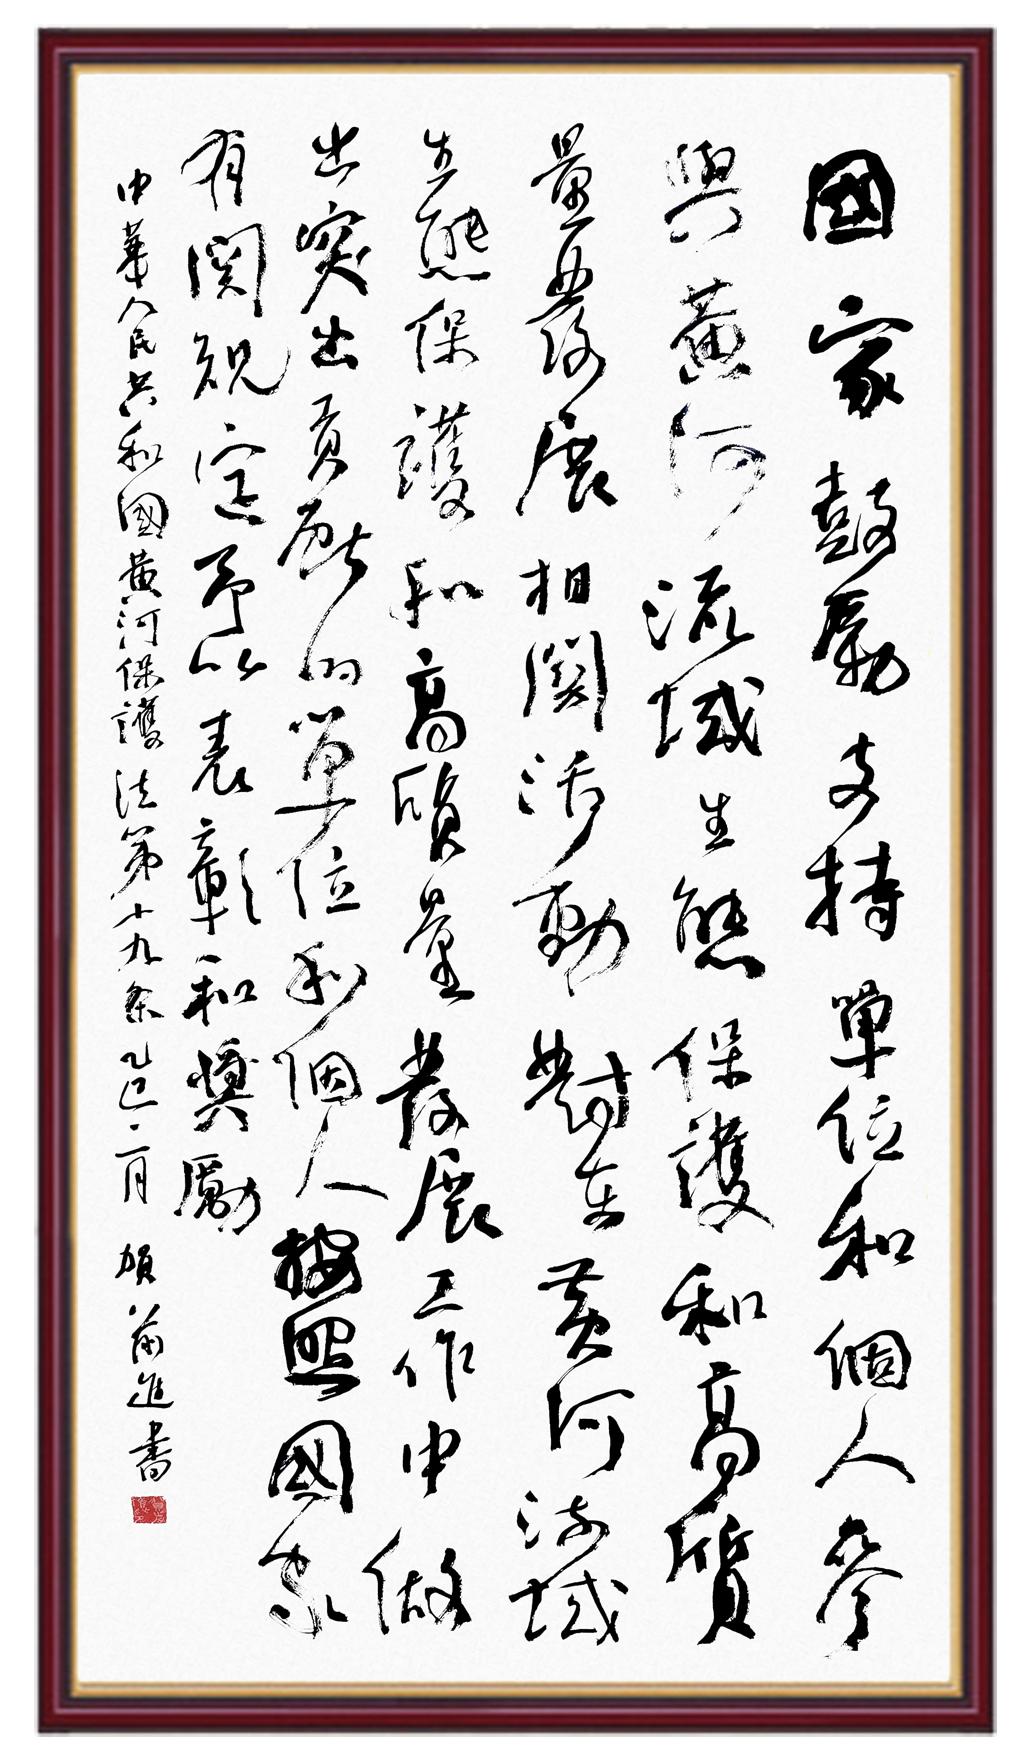 國家鼓勵支持單位和個人參
與黃河流域生態保護和高質
量發展相関活動對在黃河流域
生態保護和高質量發展工作中做
出突出貢獻的單位和個人按照國家
有関規定予以表彰和獎勵
中華人民共和國黃河保護法第十九条乙巳二月 賀前進書